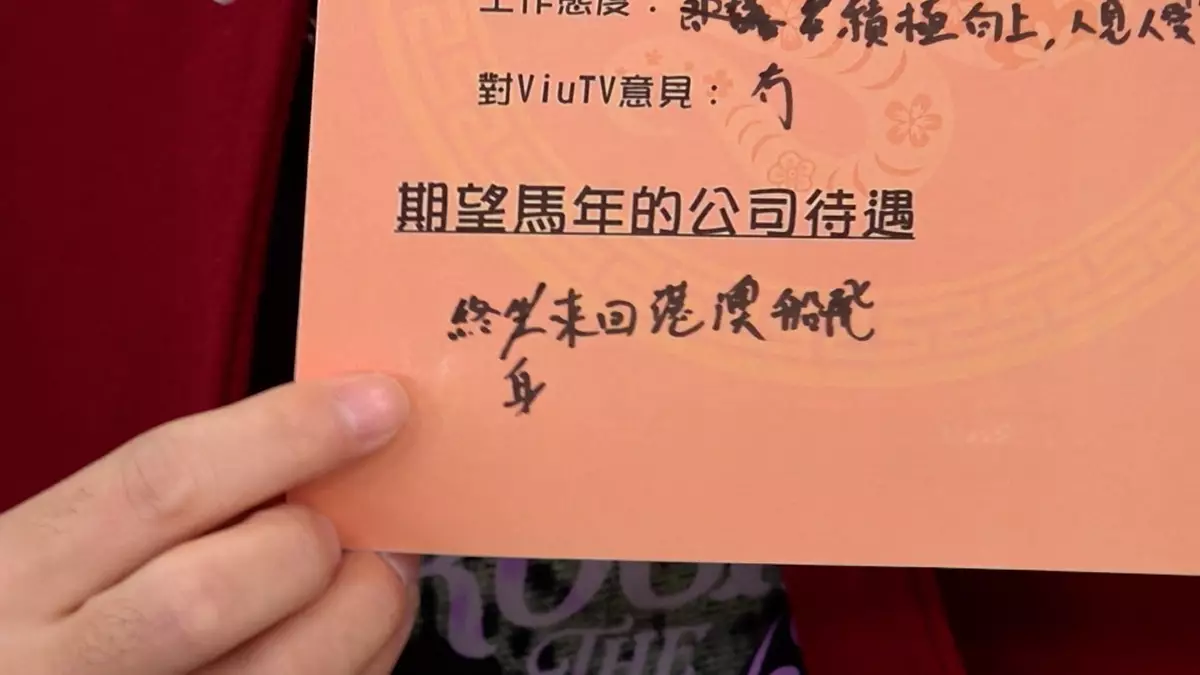 工作態度：積極向上，人見人愛
對ViuTV意見：冇
期望馬年的公司待遇
終生來回港澳船飛
ROCK
THE